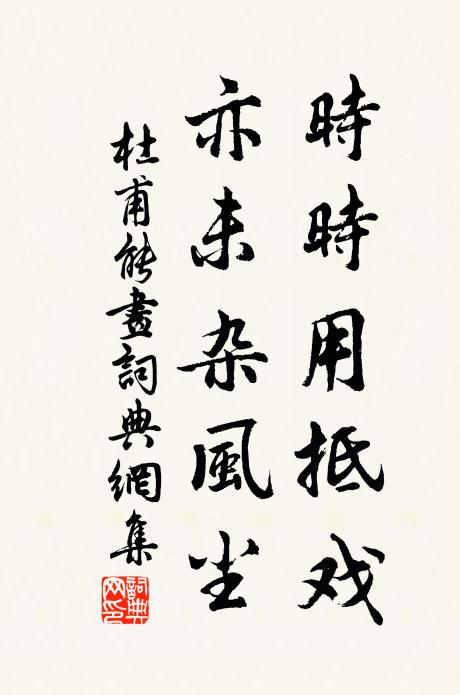 時時用抵戏
亦未杂風尘
杜甫能畫詞典網集
詞典网印